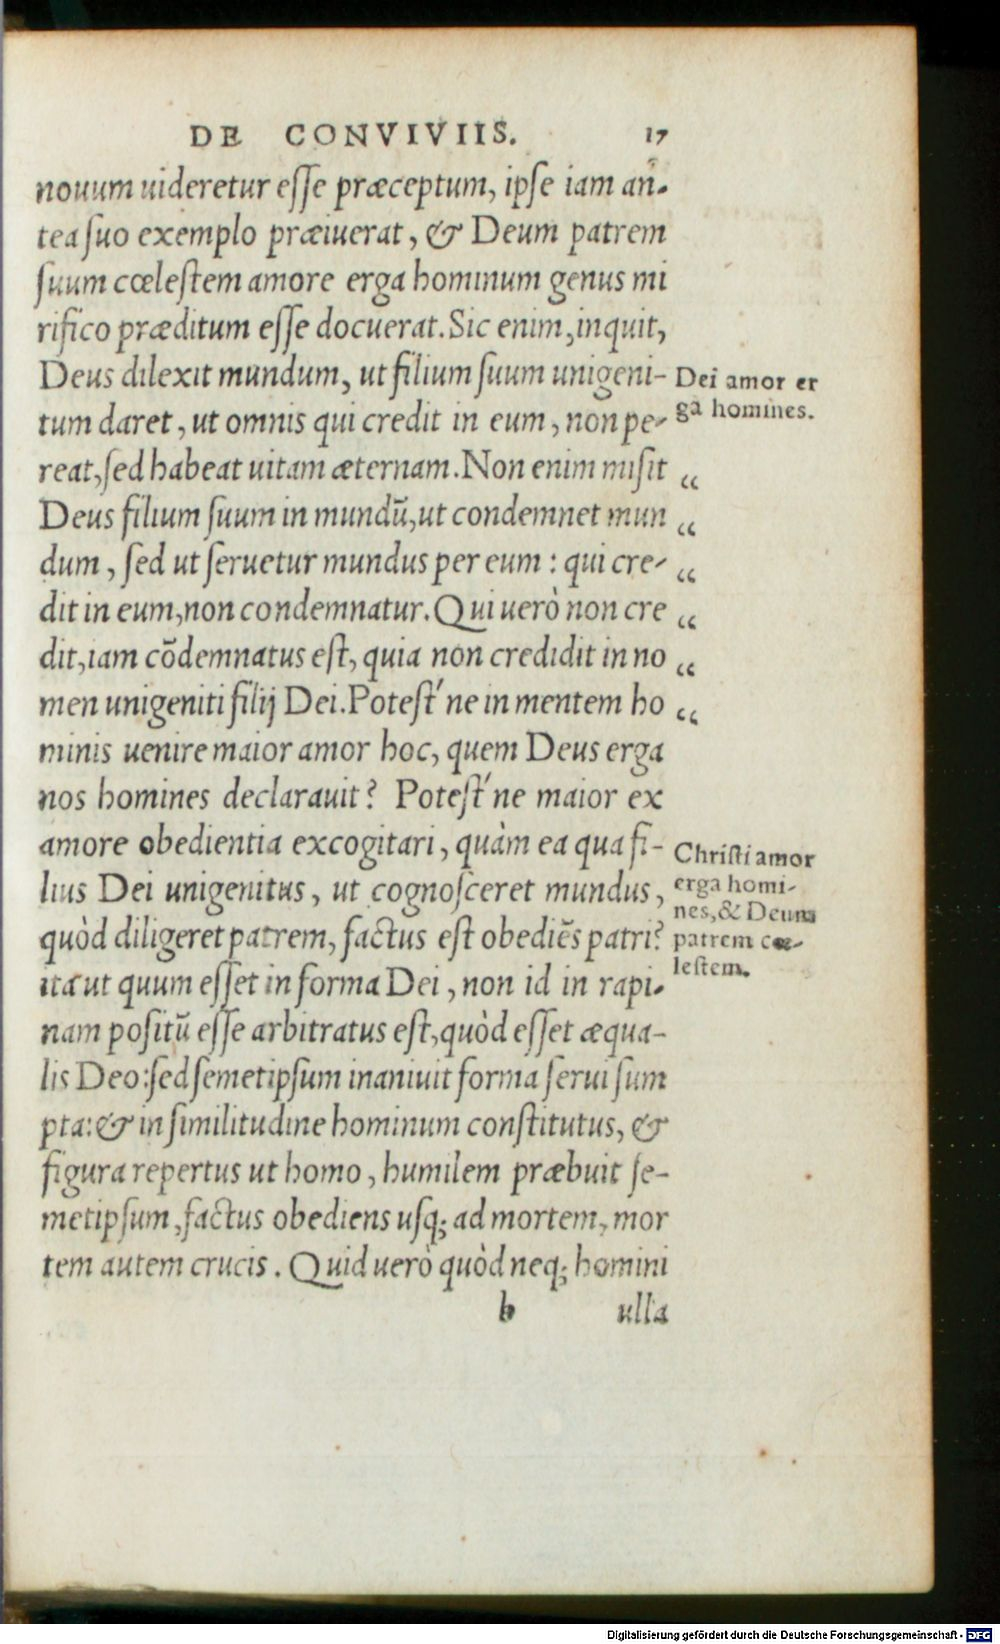 DE CONVIVIIS. 17
nouum uideretur eſſe præceptum, ipſe iam an-
tea ſuo exemplo præiuerat, & Deum patrem
ſuum cœleſtem amore erga hominum genus mi
rifico præditum eſſe docuerat. Sic enim, inquit,
Deus dilexit mundum, ut filium ſuum unigeni-
tum daret, ut omnis qui credit in eum, non pe-
reat, ſed habeat uitam æternam. Non enim miſit
Deus filium ſuum in mundū, ut condemnet mun
dum, ſed ut ſeruetur mundus per eum: qui cre-
dit in eum, non condemnatur. Qui uerò non cre
dit, iam cōdemnatus eſt, quia non credidit in no
men unigeniti filij Dei. Poteſt´ne in mentem ho
minis uenire maior amor hoc, quem Deus erga
nos homines declarauit? Poteſt´ne maior ex
amore obedientia excogitari, quàm ea qua fi-
lius Dei unigenitus, ut cognoſceret mundus,
quòd diligeret patrem, factus eſt obediēs patri?
ita ut quum eſſet in forma Dei, non id in rapi-
nam poſitū eſſe arbitratus eſt, quòd eſſet æqua-
lis Deo: ſed ſemetipſum inaniuit forma ſerui ſum
pta: & in ſimilitudine hominum conſtitutus, &
figura repertus ut homo, humilem præbuit ſe-
metipſum, factus obediens uſq; ad mortem, mor
tem autem crucis. Quid uerò quòd neq; homini
b ulla
Dei amor er
ga homines.
“
“
“
“
“
“
Chriſti amor
erga homi-
nes, & Deum
patrem cœ-
leſtem.
Digitalisierung gefördert durch die Deutsche Forschungsgemeinschaft - DFG